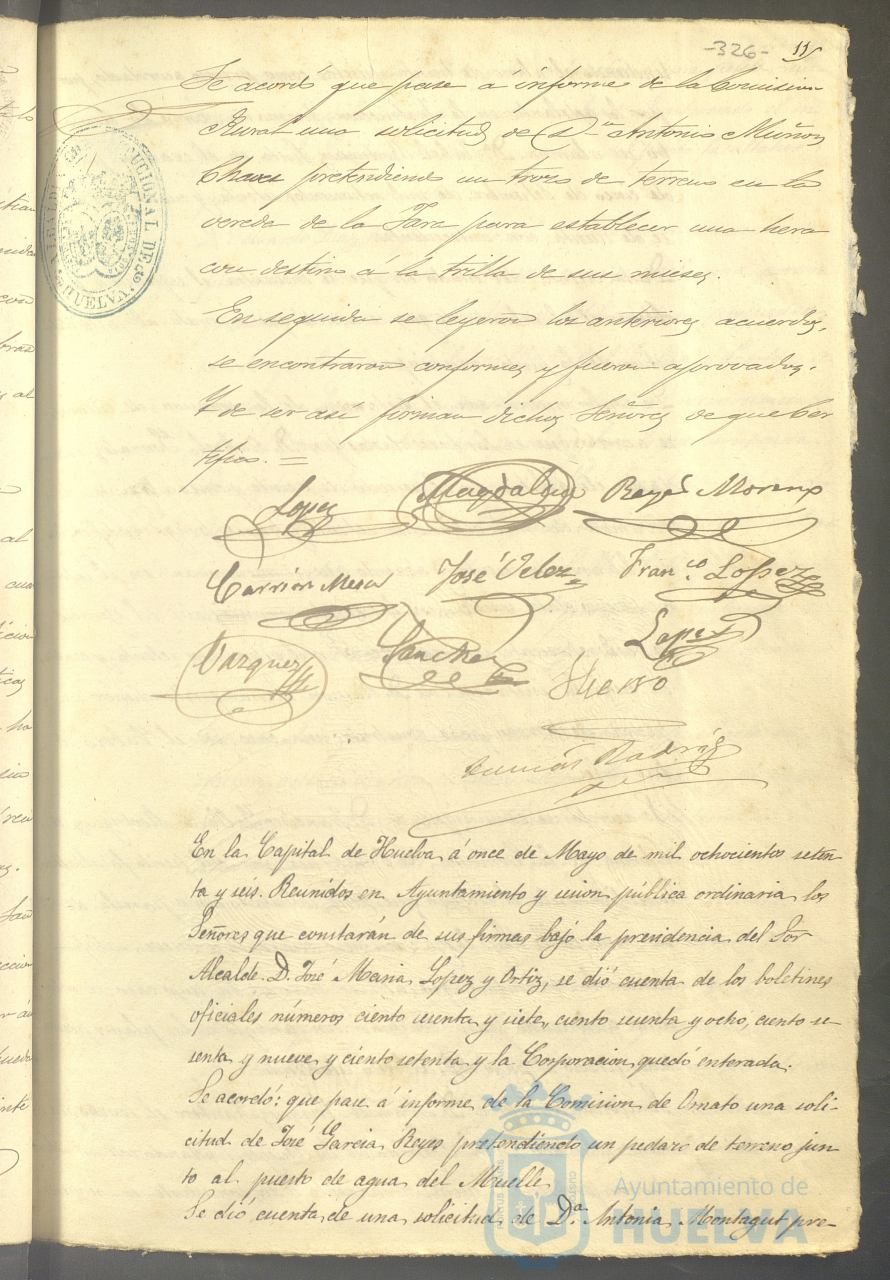 -326- 11
Se acordó que pase á informe de la Comision
Rural una solicitud de Dn Antonio Muñoz
Chaves pretendiendo un trozo de terreno en la
vereda de la para establecer una hera
con destino á la trilla de sus mieses.
En seguida se leyeron los anteriores acuerdos,
se encontraron conformes y fueron aprovados.
Y de ser así firman dichos Señores de que Cer
tifico. =
Lopez Magdalena Reyes Moreno
Carrión Mesa José Velez Fran.co Lopez
Vazquez Sanchez Lopez
ALCALDIA CONSTITUCIONAL DE HUELVA
En la Capital de Huelva á once de Mayo de mil ochocientos seten
ta y seis. Reunidos en Ayuntamiento y sesion pública ordinaria los
Señores que constarán de sus firmas bajo la presidencia del Sor
Alcalde D. José Maria Lopez y Ortiz, se dió cuenta de los boletines
oficiales números ciento sesenta y siete, ciento sesenta y ocho, ciento se-
senta y nueve y ciento setenta y la Corporacion quedó enterada.
Se acordó: que pase á informe de la Comision de Ornato una soli-
citud de José Garcia Reyes pretendiendo un pedazo de terreno jun
to al puesto de agua del Muelle.
Se dió cuenta de una solicitud de Da. Antonia Montagut pre-
Ayuntamiento de
HUELVA